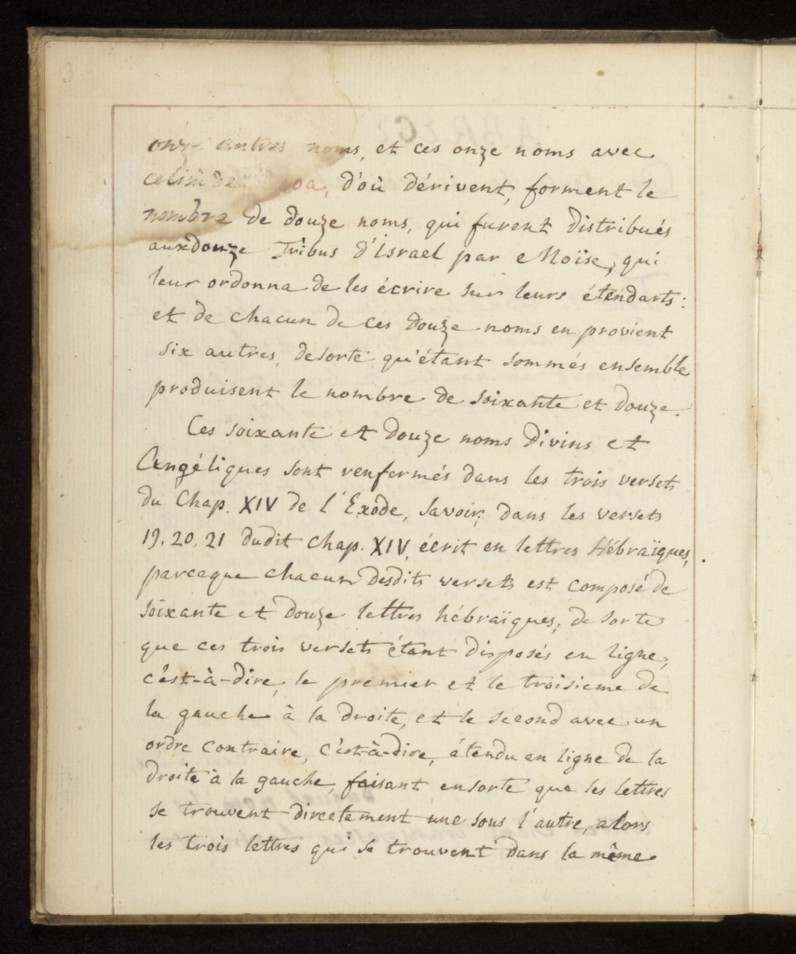 onze autres noms, et ces onze noms avec
celui de oa, d'où dérivent, forment le
nombre de douze noms, qui furent distribués
aux douze Tribus d'Israel par Moïse, qui
leur ordonna de les écrire sur leurs étendarts:
et de chacun de ces douze noms en provient
six autres, desorte qu'étant sommés ensemble
produisent le nombre de soixante et douze.
Ces soixante et douze noms Divins et
Angéliques sont renfermés dans les trois versets
du Chap. XIV de l'Exode, Savoir, dans les versets
19. 20. 21 dudit Chap. XIV, écrit en lettres Hébraïques,
parceque chacun desdits versets est composé de
soixante et douze lettres hébraïques; de sorte
que ces trois versets étant disposés en ligne,
c'est-à-dire, le premier et le troisieme de
la gauche à la droite, et le second avec un
ordre contraire, c'est-à-dire, étendu en ligne de la
droite à la gauche, faisant ensorte que les lettres
se trouvent directement une sous l'autre, alors
les trois lettres qui se trouvent dans la même